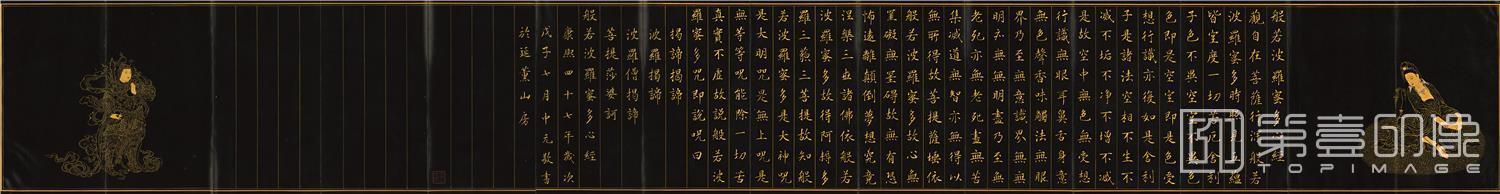 般若波羅蜜多心經
觀自在菩薩行深般若
波羅蜜多時照見五蘊
皆空度一切苦厄舍利
子色不異空空不異色
色即是空空即是色受
想行識亦復如是舍利
子是諸法空相不生不
滅不垢不淨不增不減
是故空中無色無受想
行識無眼耳鼻舌身意
無色聲香味觸法無眼
界乃至無意識界無無
明亦無無明盡乃至無
老死亦無老死盡無苦
集滅道無智亦無得以
無所得故菩提薩埵依
般若波羅蜜多故心無
罣礙無罣礙故無有恐
怖遠離顛倒夢想究竟
涅槃三世諸佛依般若
波羅蜜多故得阿耨多
羅三藐三菩提故知般
若波羅蜜多是大神咒
是大明咒是無上咒是
無等等咒能除一切苦
真實不虛故說般若波
羅蜜多咒即說咒曰
揭諦揭諦
波羅揭諦
波羅僧揭諦
菩提莎婆訶
般若波羅蜜多心經
康熙四十七年歲次
戊子七月中元敬書
於延薰山房
第壹印象
TOPIMAGE